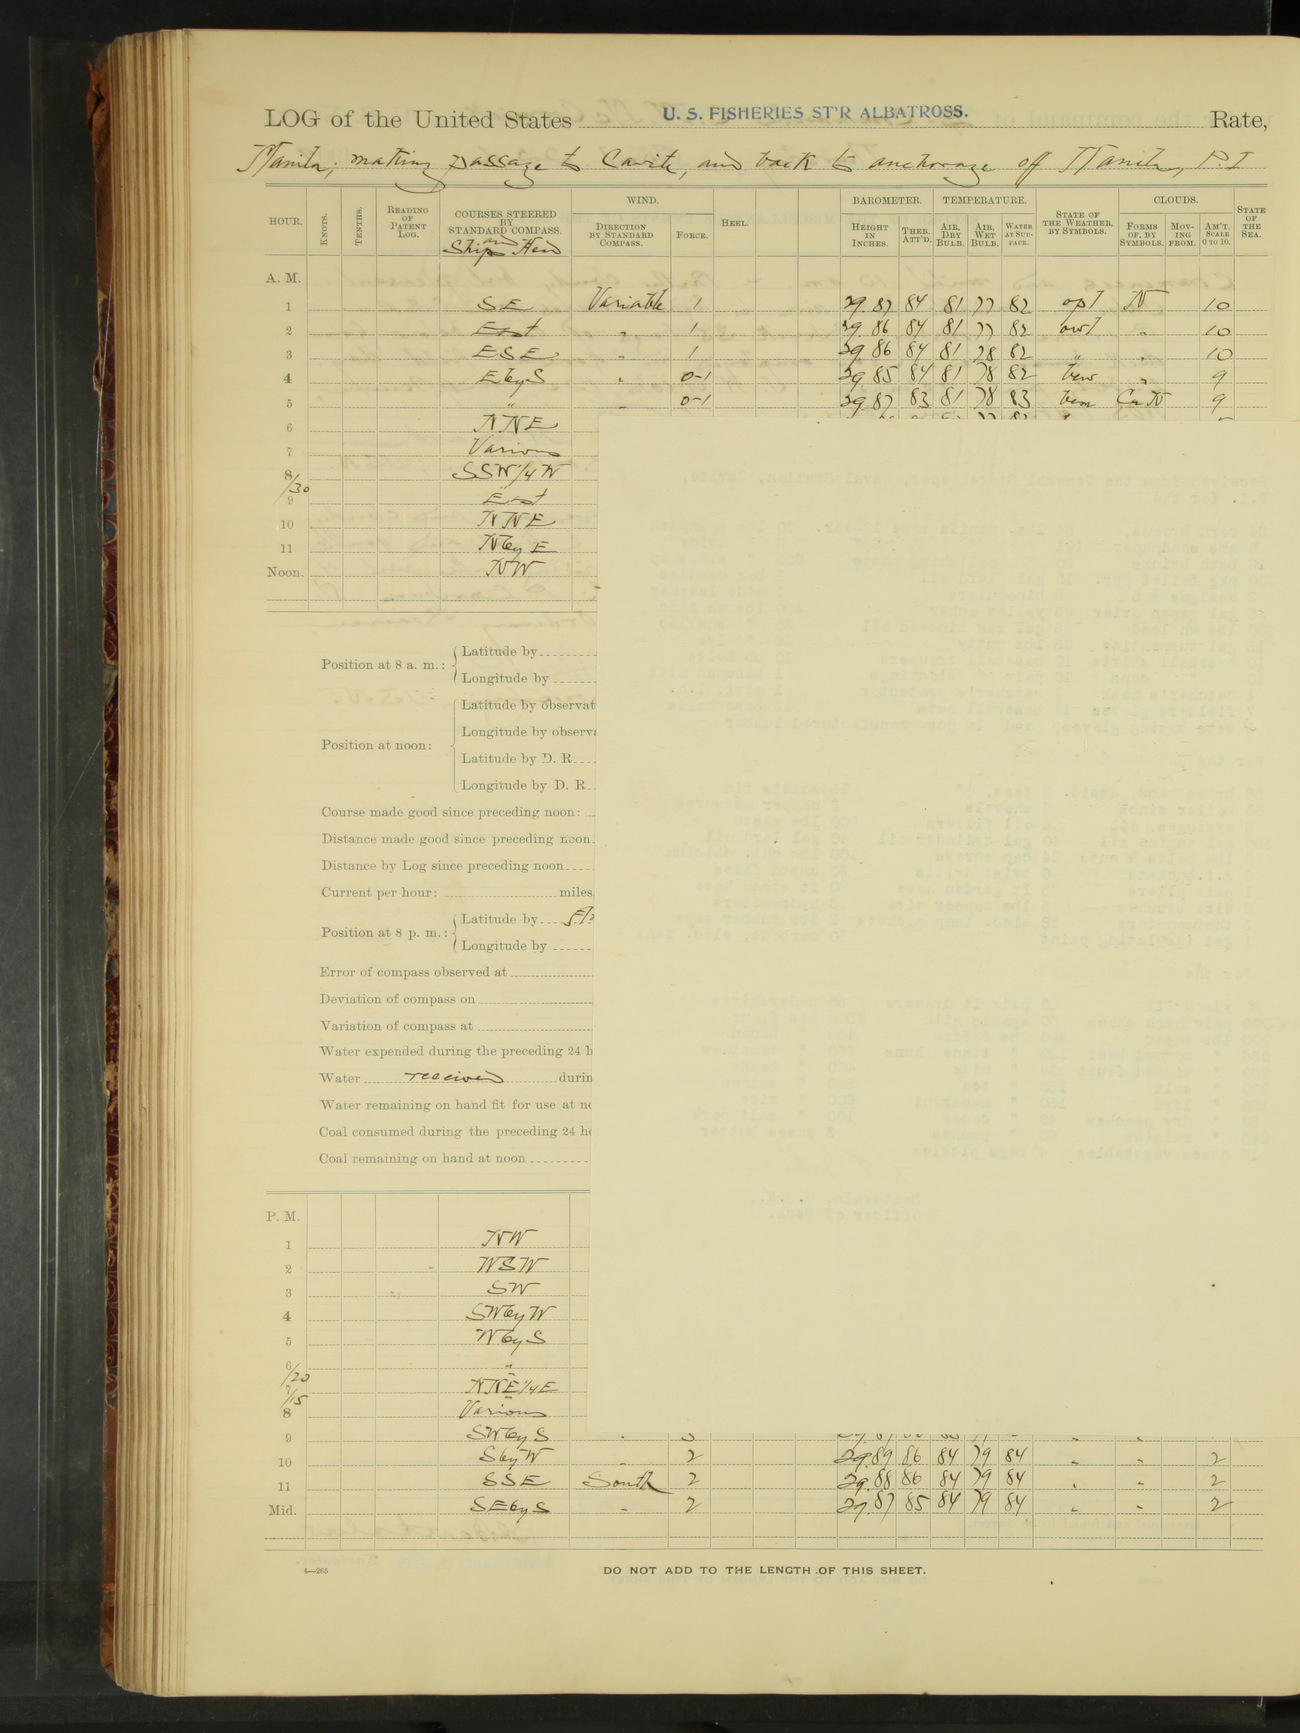 LOG of the United States U. S. FISHERIES ST'R ALBATROSS. Rate,
Manila; making passage to Cavite, and back to anchorage off Manila, P. I
HOUR. KNOTS. TENTHS. READING OF PATENT LOG. COURSES STEERED BY STANDARD COMPASS. WIND. DIRECTION BY STANDARD COMPASS. FORCE. HEEL. BAROMETER. HEIGHT IN INCHES. THER. ATT'D. TEMPERATURE. AIR, DRY BULB. AIR, WET BULB. WATER AT SURFACE. STATE OF THE WEATHER, BY SYMBOLS. CLOUDS. FORMS OF, BY SYMBOLS. MOVING FROM. AM'T. SCALE 0 TO 10. STATE OF THE SEA.
Ship's Head
A. M.
1 SE Variable 1 29.87 84 81 77 82 N 10
2 East " 1 29 86 84 81 77 82 " 10
3 ESE " 1 29 86 84 81 78 82 " " 10
4 EbyS " 0-1 29 85 84 81 78 82 " 9
5 " " 0-1 29 87 83 81 78 83 Cu N 9
6 NNE
7 Various
8 SSW 1/4 W
/30
9 East
10 NNE
11 NbyE
Noon. NW
Position at 8 a. m.: Latitude by
Longitude by
Position at noon: Latitude by observat
Longitude by observa
Latitude by D. R.
Longitude by D. R.
Course made good since preceding noon:
Distance made good since preceding noon
Distance by Log since preceding noon
Current per hour: miles,
Position at 8 p. m.: Latitude by
Longitude by
Error of compass observed at
Deviation of compass on
Variation of compass at
Water expended during the preceding 24 h
Water received durin
Water remaining on hand fit for use at no
Coal consumed during the preceding 24 ho
Coal remaining on hand at noon
P. M.
1 NW
2 WSW
3 SW
4 SWbyW
5 WbyS
6 "
/20
7 NNE 1/4 E
/15
8 Various
9 SWbyS "
10 SbyW " 2 29.89 86 84 79 84 " " 2
11 SSE South 2 29.88 86 84 79 84 " " 2
Mid. SEbyS " 2 29.87 85 84 79 84 " " 2
4—265
DO NOT ADD TO THE LENGTH OF THIS SHEET.